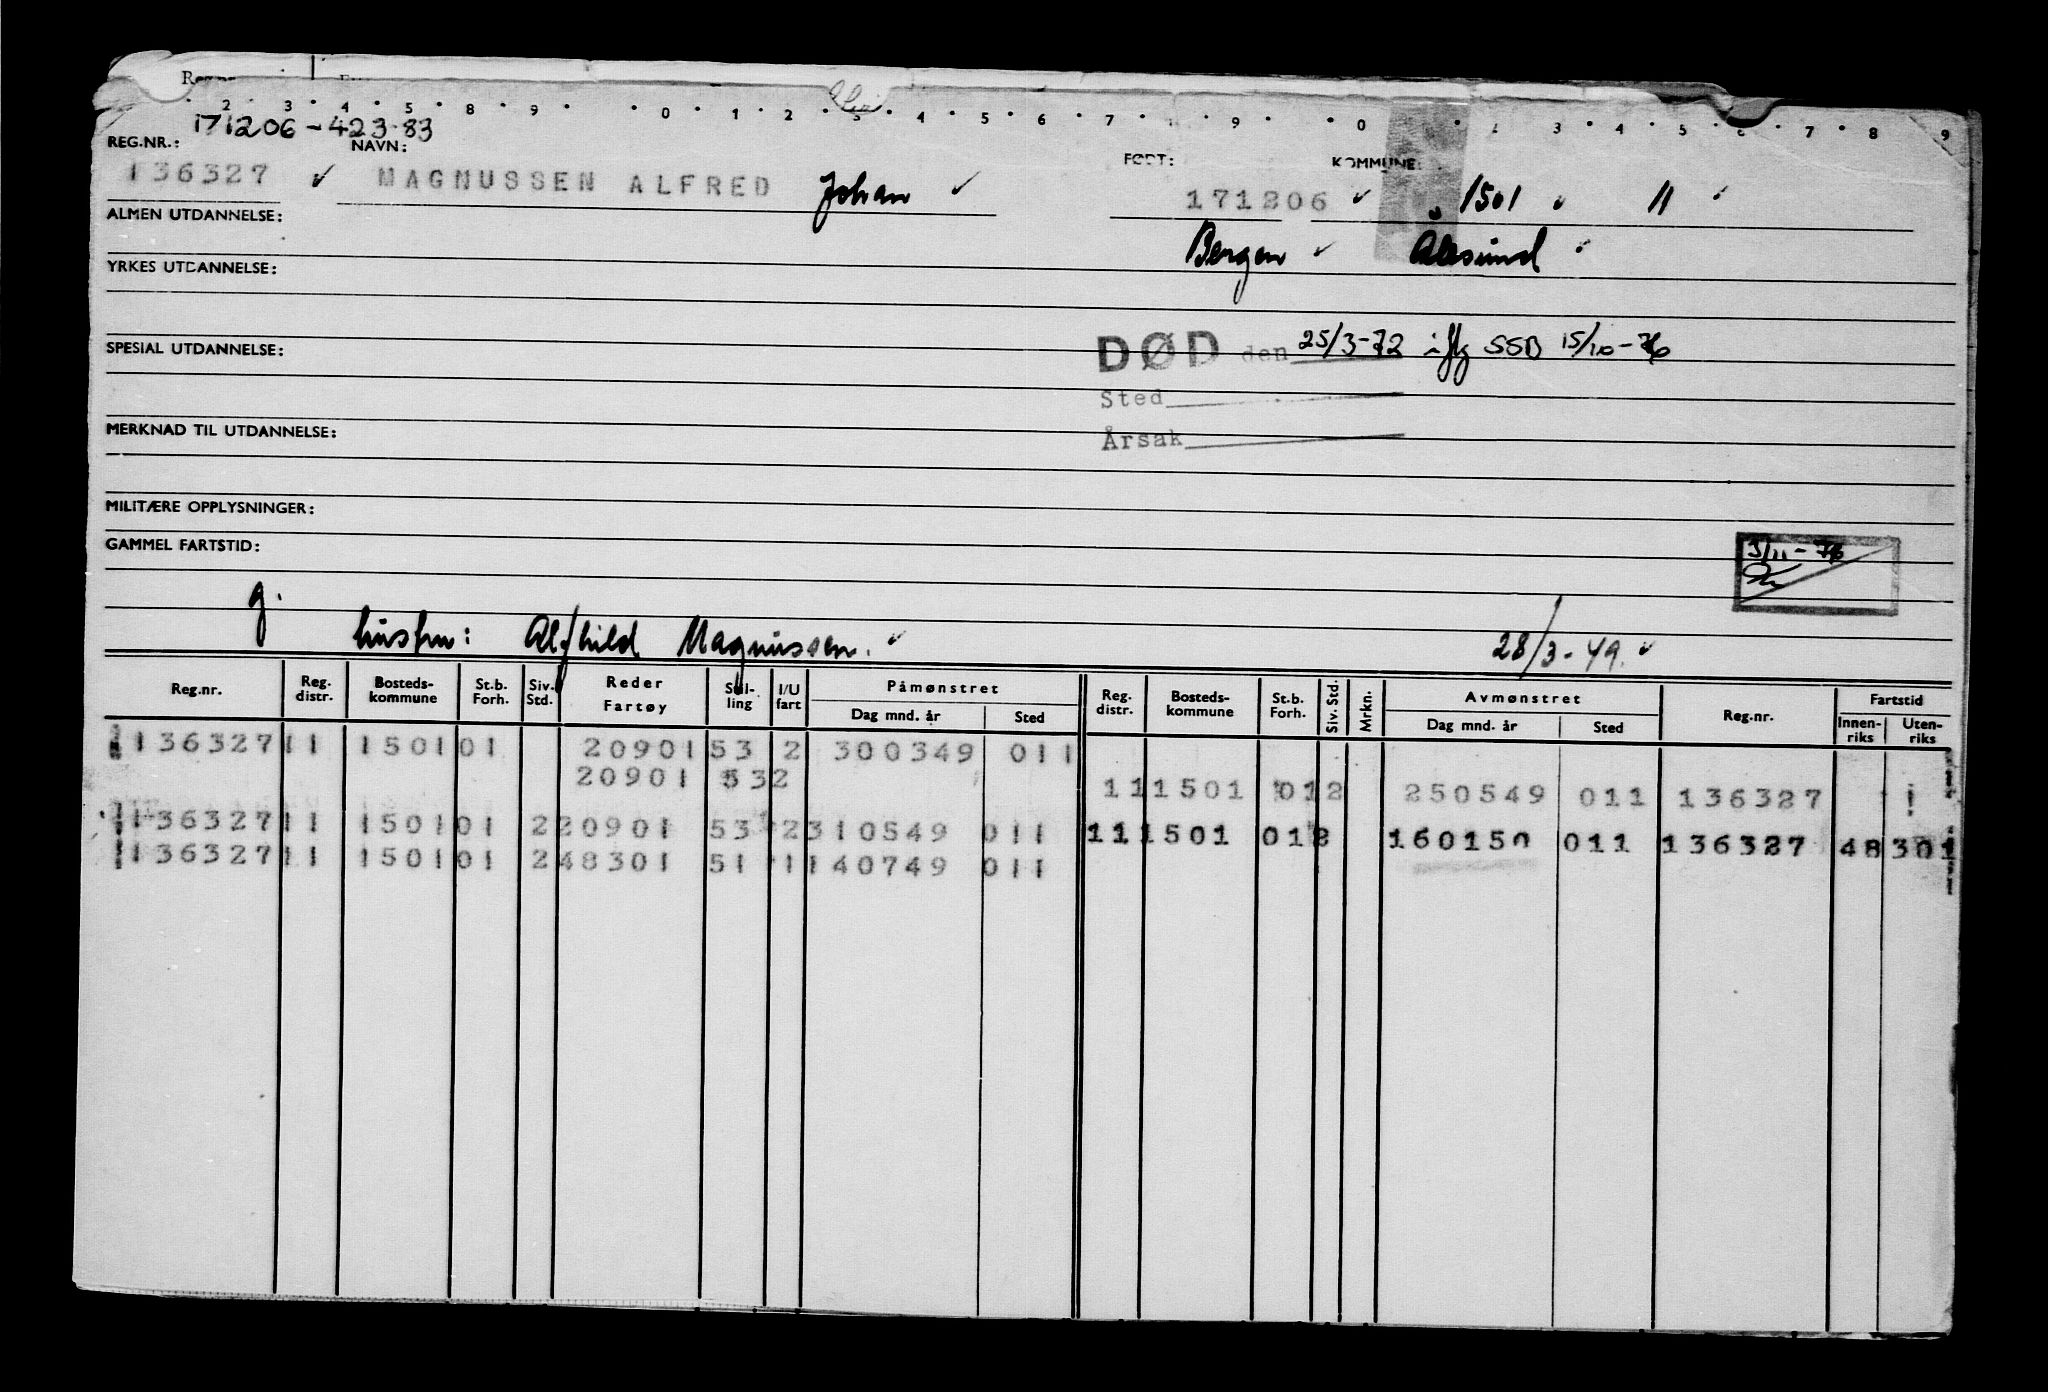 2 3 4 5 8 9 0 1 2 3 4 5 6 7 8 9 0 2 3 4 5 6 7 8 9
171206-42383
REG.NR.: NAVN: FØDT: KOMMUNE:
136327 MAGNUSSEN ALFRED Johan 171206 1501 11
ALMEN UTDANNELSE:
Bergen Ålesund
YRKES UTDANNELSE:
DØD den 25/3-72 iflg SSB 15/10-76
SPESIAL UTDANNELSE:
Sted
MERKNAD TIL UTDANNELSE: Årsak
MILITÆRE OPPLYSNINGER:
GAMMEL FARTSTID: 3/11-76
g.
hustru: Alfhild Magnussen. 28/3-49.
Reg.nr. Reg. distr. Bosteds-kommune St.b. Forh. Siv. Std. Reder Fartøy Stil-ling I/U fart Påmønstret Dag mnd. år Sted Reg. distr. Bosteds-kommune St.b. Forh. Siv. Std. Mrkn. Avmønstret Dag mnd. år Sted Reg.nr. Fartstid Innen-riks Uten-riks
136327 11 1501 01 20901 53 2 300349 011
20901 53 2 11 1501 01 2 250549 011 136327 1
136327 11 1501 01 2 20901 53 2 310549 011 11 1501 01 2 160150 011 136327 48301
136327 11 1501 01 2 48301 51 1 140749 011